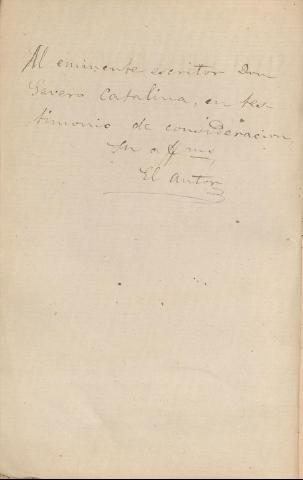 Al eminente escritor Don
Severo Catalina, en tes-
timonio de consideracion
Su a
El autor